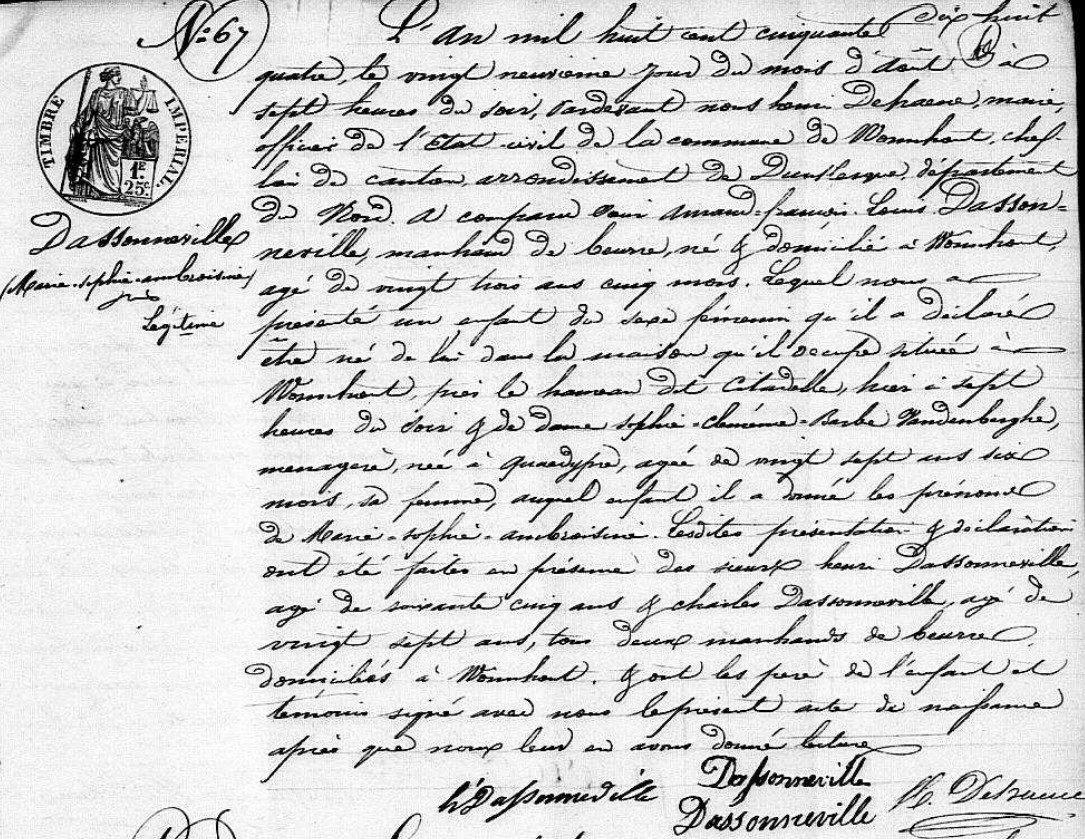 Dix huit
N° 67
L'an mil huit cent cinquante
quatre, le vingt neuvième jour du mois d'août à
sept heures du soir, Pardevant nous henri Dehaene, maire,
officier de l'Etat civil de la commune de Wormhout, chef
lieu de canton, arrondissement de Dunkerque, département
du Nord. A comparu Amand-françois-Louis Dasson=
neville, marchand de beurre, né & domicilié à Wormhout,
agé de vingt trois ans cinq mois. Lequel nous a
présenté un enfant du sexe féminin qu'il a déclaré
être né de lui dans la maison qu'il occupe située à
Wormhout, près le hameau dit Citadelle, hier à sept
heures du soir & de dame sophie-clémence-Barbe Vandenberghe,
menagère, née à quaedypre, agée de vingt sept ans six
mois, sa femme, auquel enfant il a donné les prénoms
de Marie-sophie-ambroisine. Lesdites présentation & déclaration
ont été faites en présence des sieurs henri Dassonneville,
agé de soixante cinq ans & charles Dassonneville, agé de
vingt sept ans, tous deux marchands de beurre
domiciliés à Wormhout. & ont les père de l'enfant et
témoins signé avec nous le présent acte de naissance
après que nous leur en avons donné lecture
TIMBRE IMPÉRIAL.
1F
25c.
Dassonneville
(Marie-sophie-ambroisine)
Légitime
h Dassonneville
Dassonneville
Dassonneville
H. Dehaene